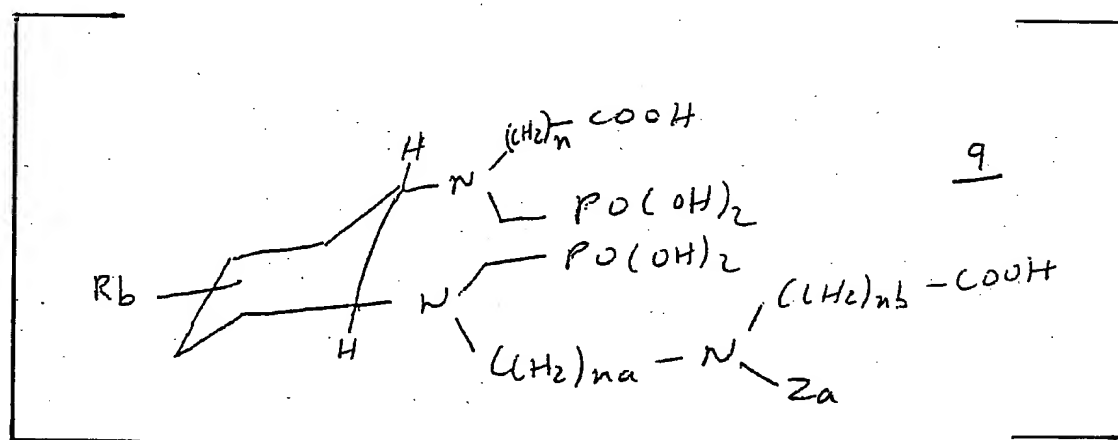 (CH2)n COOH
H
N
9
PO(OH)2
PO(OH)2
Rb
N
(CH2)nb - COOH
H
(CH2)na - N
Za